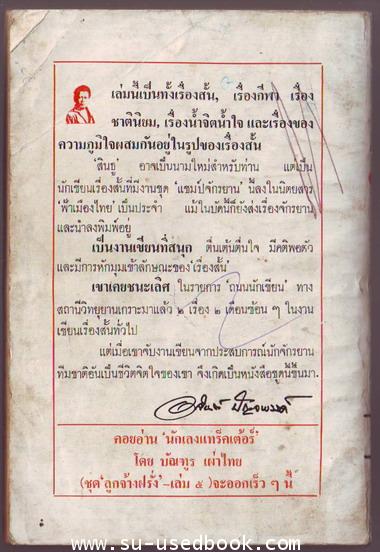 เล่มนี้เป็นทั้งเรื่องสั้น, เรื่องกีฬา เรื่อง
ชาตินิยม, เรื่องน้ำจิตน้ำใจ และเรื่องของ
ความภูมิใจผสมกันอยู่ในรูปของเรื่องสั้น
'สินธู' อาจเป็นนามใหม่สำหรับท่าน แต่เป็น
นักเขียนเรื่องสั้นที่มีงานชุด 'แชมป์จักรยาน' นี้ลงในนิตยสาร
'ฟ้าเมืองไทย' เป็นประจำ แม้ในบัดนี้ก็ยังส่งเรื่องจักรยาน
และนำลงพิมพ์อยู่
เป็นงานเขียนที่สนุก ตื่นเต้นตื่นใจ มีคติพอตัว
และมีการหักมุมเข้าลักษณะของ 'เรื่องสั้น'
เขาเคยชนะเลิศ ในรายการ 'ถนนนักเขียน' ทาง
สถานีวิทยุยานเกราะมาแล้ว ๒ เรื่อง ๒ เดือนซ้อน ๆ ในงาน
เขียนเรื่องสั้นทั่วไป
แต่เมื่อเขาจับงานเขียนจากประสบการณ์นักจักรยาน
ทีมชาติอันเป็นชีวิตจิตใจของเขา จึงเกิดเป็นหนังสือชุดนี้ขึ้นมา.
อาจินต์ ปัญจพรรค์
คอยอ่าน 'นักเลงแทร็คเต้อร์'
โดย บัณฑูร เผ่าไทย
(ชุด 'ลูกจ้างฝรั่ง' -เล่ม ๕ ) จะออกเร็ว ๆ นี้
www.su-usedbook.com